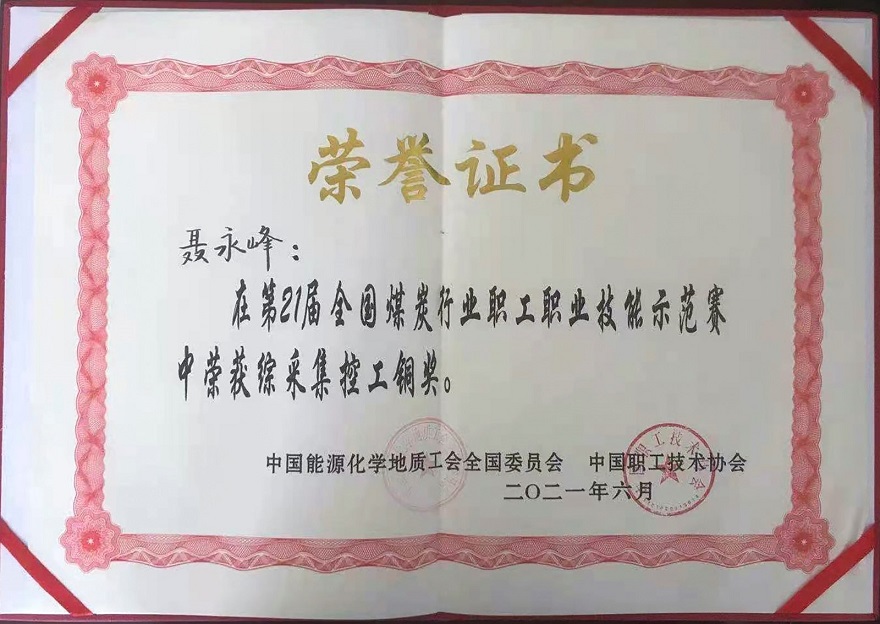 荣誉证书
聂永峰：
在第21届全国煤炭行业职工职业技能示范赛
中荣获综采集控工铜奖。
中国能源化学地质工会全国委员会 中国职工技术协会
二〇二一年六月